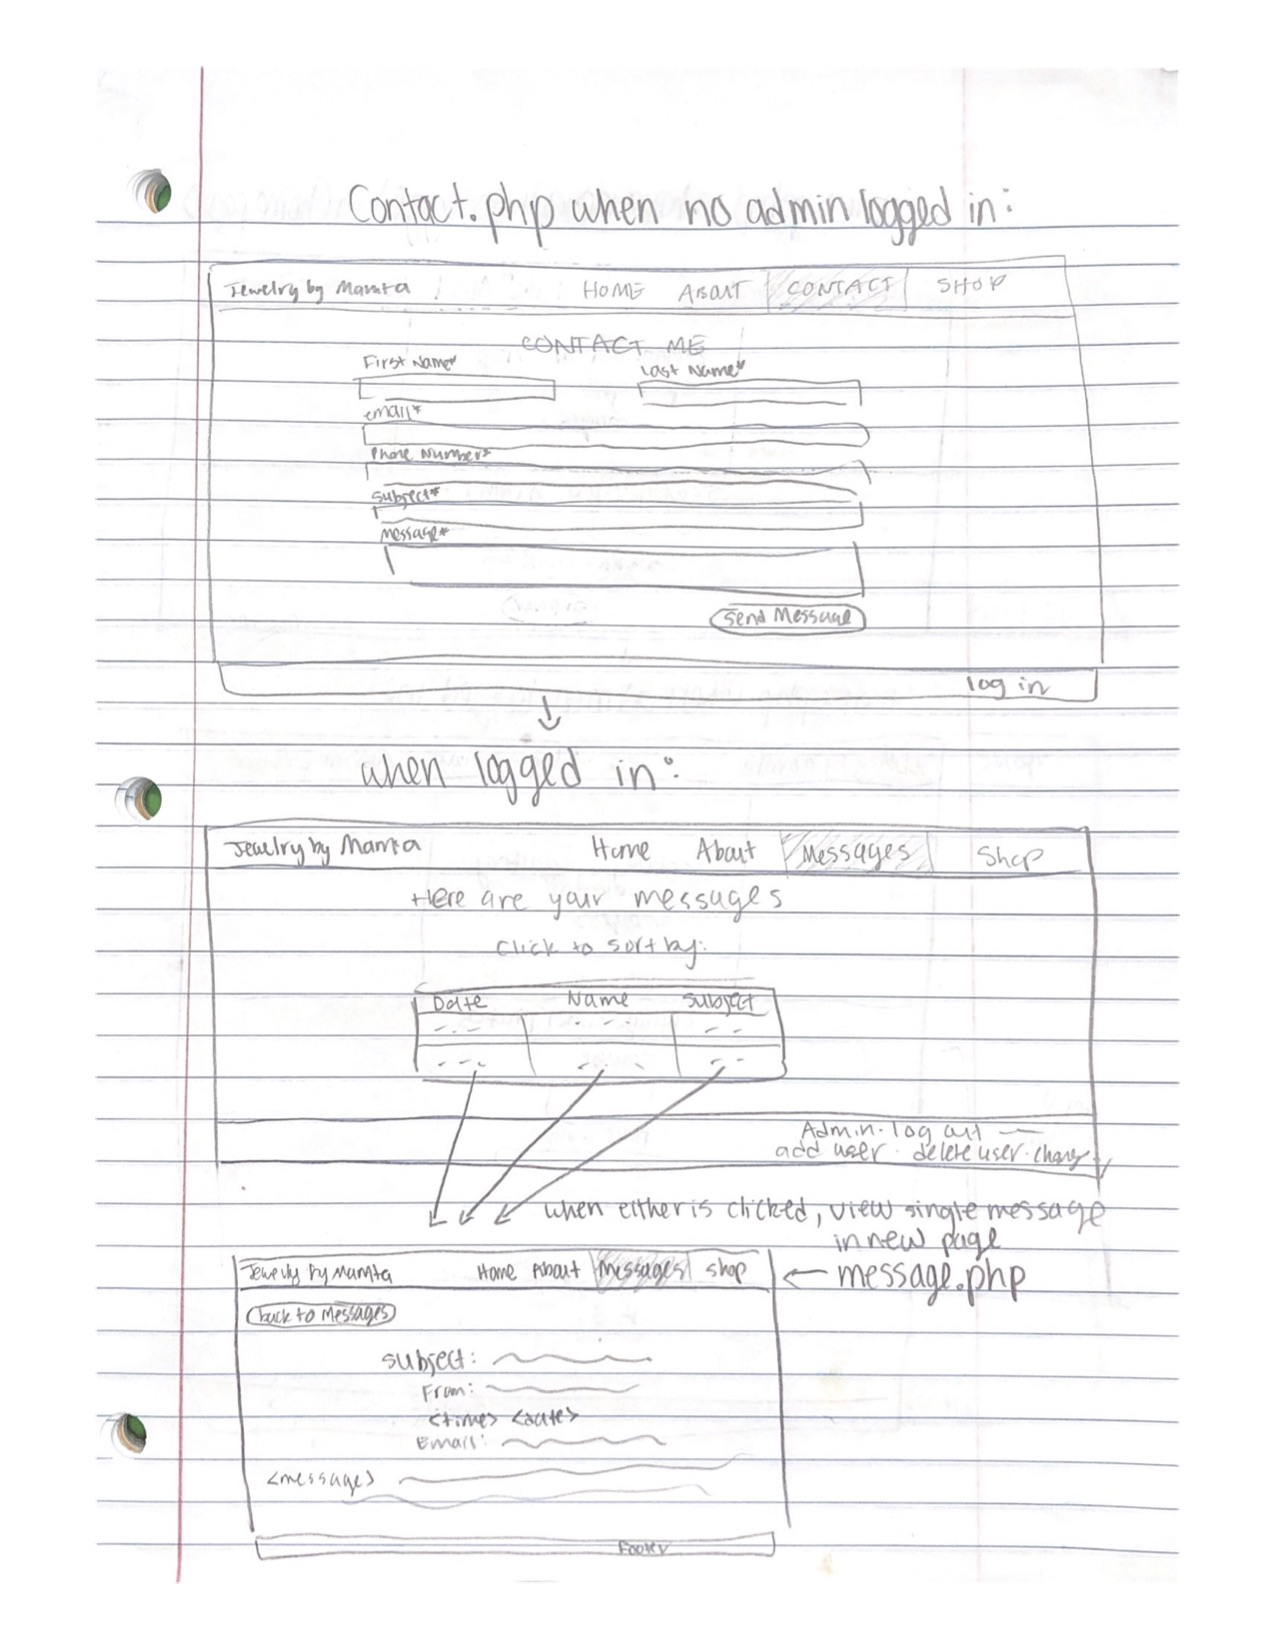 Contact.php when no admin logged in:
Jewelry by Mamta HOME ABOUT CONTACT SHOP
CONTACT ME
First Name* Last Name*
email*
Phone Number*
Subject*
Message*
Send Message
log in
when logged in:
Jewelry by Mamta Home About Messages Shop
Here are your messages
Click to sort by:
Date Name Subject
Admin · log out —
add user · delete user · change
when either is clicked, view single message
in new page
Jewelry by Mamta Home About Messages Shop ← message.php
back to Messages
Subject:
From:
<time> <date>
Email:
<message>
Footer